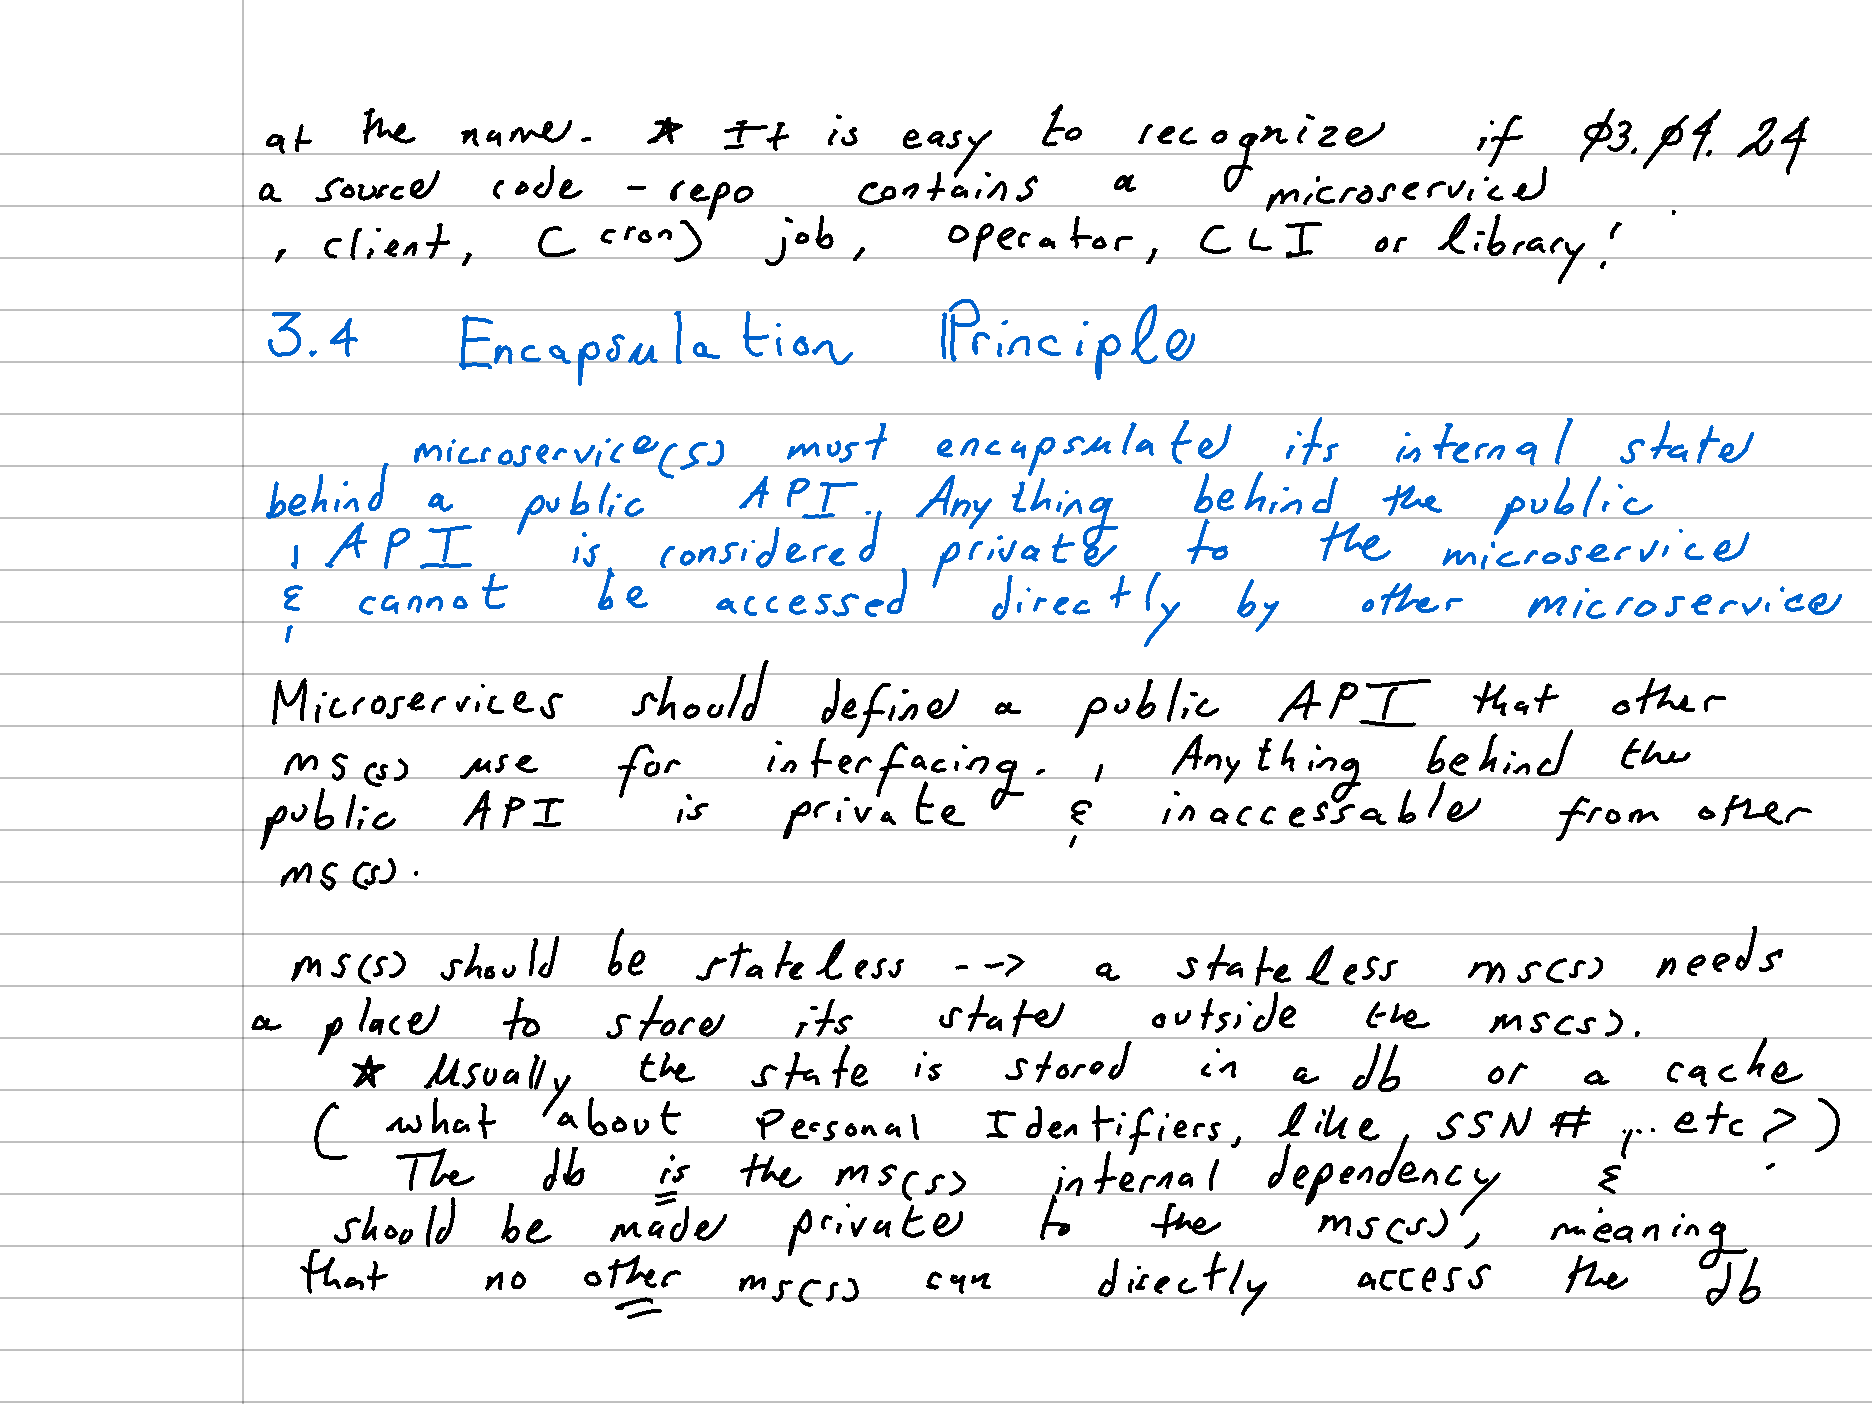 at the name. ★ It is easy to recognize if 03.04.24
a source code - repo contains a microservice
, client, (cron) job, operator, CLI or library!
3.4 Encapsulation Principle
microservice(s) must encapsulate its internal state
behind a public API. Anything behind the public
API is considered private to the microservice
& cannot be accessed directly by other microservice
Microservices should define a public API that other
ms(s) use for interfacing. Anything behind the
public API is private & inaccessable from other
ms(s).
ms(s) should be stateless --> a stateless ms(s) needs
a place to store its state outside the ms(s).
★ Usually the state is stored in a db or a cache
(what about Personal Identifiers, like, SSN # ... etc?)
The db is the ms(s) internal dependency &
should be made private to the ms(s), meaning
that no other ms(s) can directly access the db